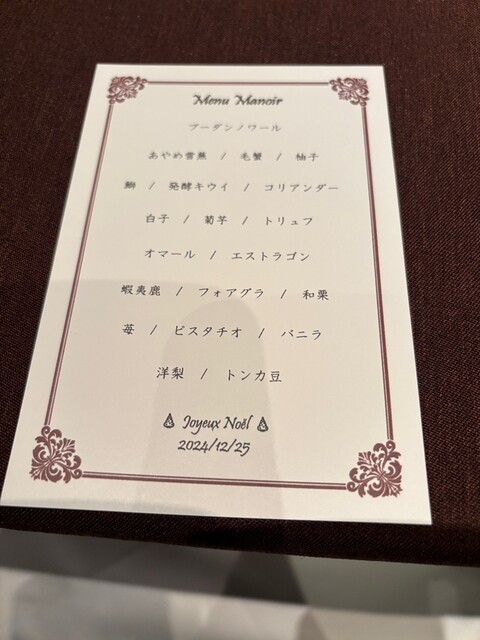 Menu Manoir
ブーダンノワール
あやめ雪蕪 / 毛蟹 / 柚子
鰤 / 発酵キウイ / コリアンダー
白子 / 菊芋 / トリュフ
オマール / エストラゴン
蝦夷鹿 / フォアグラ / 和栗
苺 / ピスタチオ / バニラ
洋梨 / トンカ豆
Joyeux Noël
2024/12/25